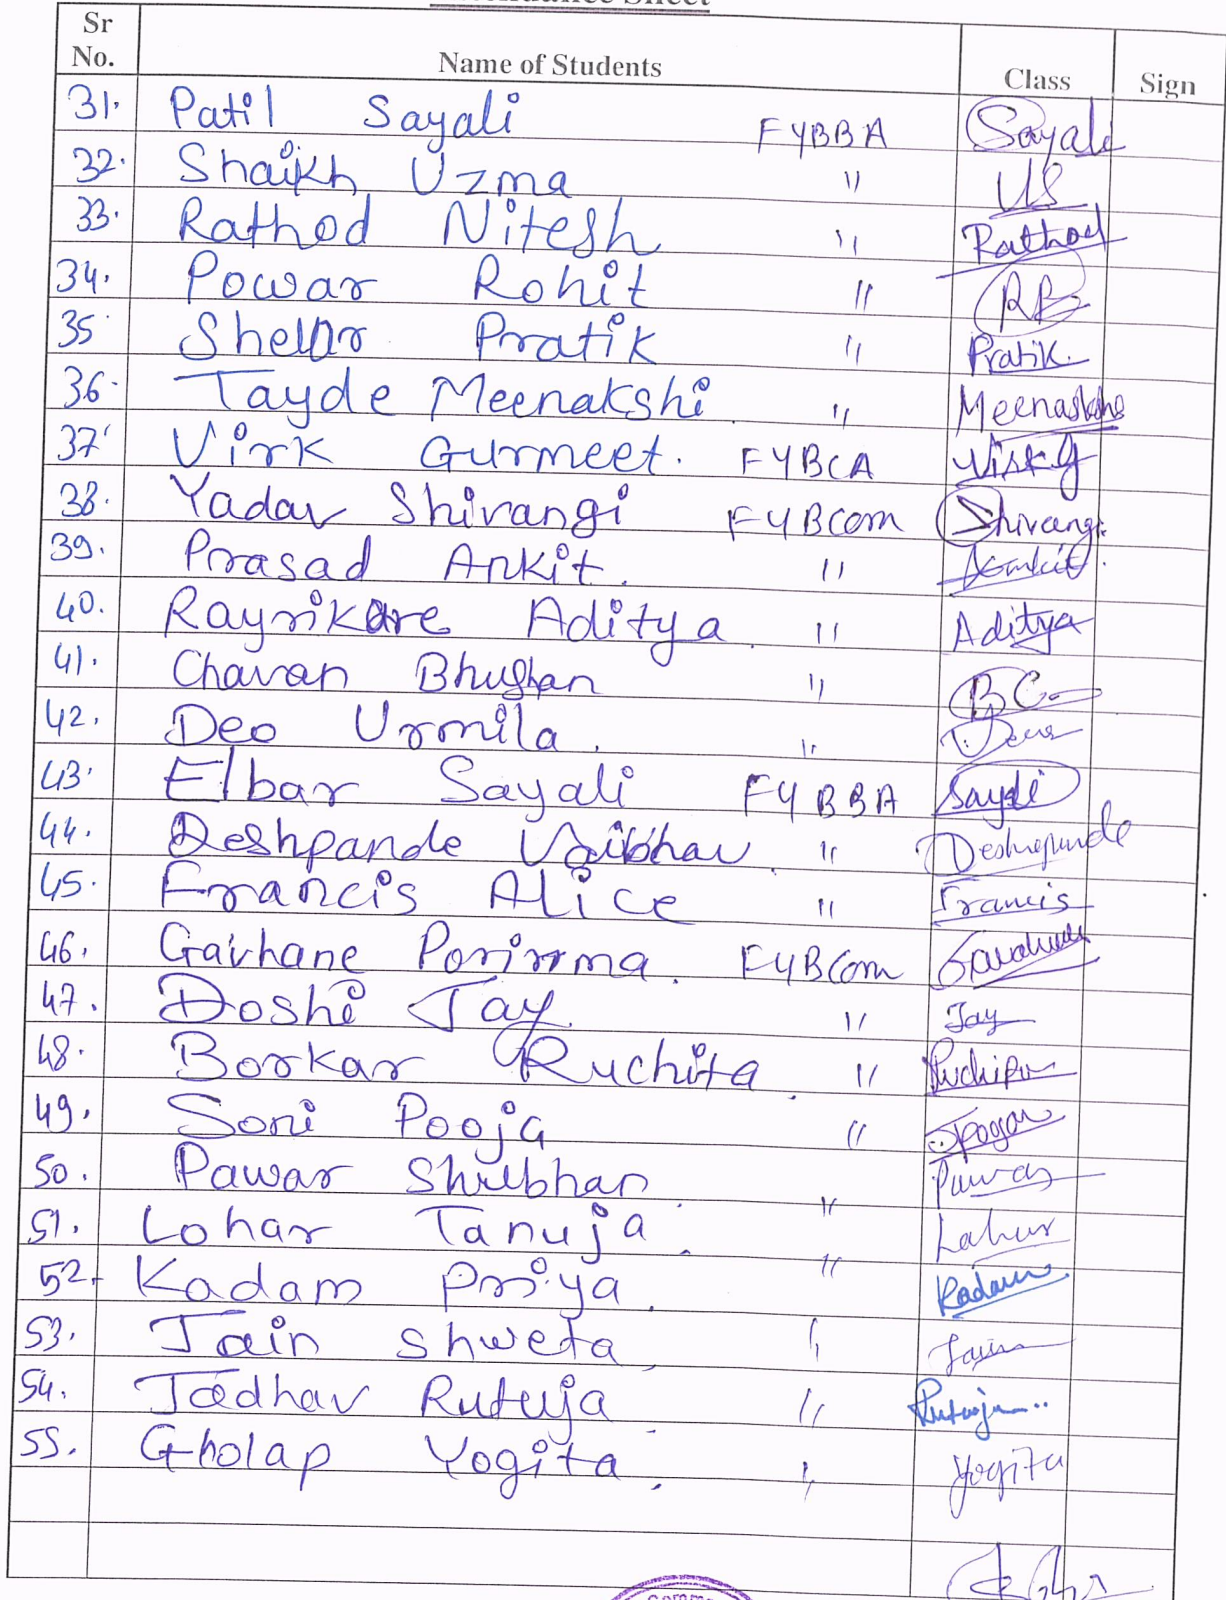 Sr No. Name of Students Class Sign
31. Patil Sayali FYBBA Sayali
32. Shaikh Uzma " US
33. Rathod Nitesh " Rathod
34. Powar Rohit " RB
35 Shelar Pratik " Pratik.
36. Tayde Meenakshi " Meenakshi
37 Virk Gurmeet. FYBCA Virk G
38. Yadav Shivangi FYBCom Shivangi
39. Prasad Ankit. " Ankit.
40. Rayrikare Aditya " Aditya
41. Chavan Bhushan " BC
42. Deo Urmila. "
43. Elbar Sayali FYBBA Sayali
44. Deshpande Vaibhav " Deshpande
45. Francis Alice " Francis
46. Gavhane Porirma. FYBCom
47. Doshi Jay " Jay
48. Borkar Ruchita. "
49. Soni Pooja "
50. Pawar Shubhan "
51. Lohar Tanuja. " Lohar
52. Kadam Priya. Kadam
53. Jain Shweta " Jain
54. Jadhav Rutuja " Rutuja..
55. Gholap Yogita. " Yogita